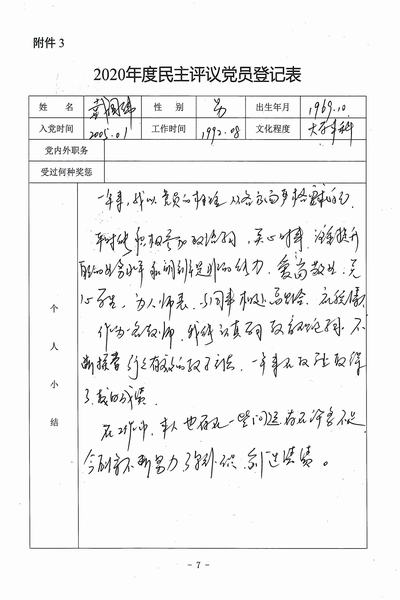 附件 3
2020年度民主评议党员登记表
姓 名 戴国 性 别 男 出生年月 1969.10
入党时间 2005.01 工作时间 1992.08 文化程度 大学本科
党内外职务
受过何种奖惩
个人小结
一年来,我以党员的标准 从各方面严格要求自己
平时能积极参加政治学习,关心时事,注意提升
自己的业务水平和明辨是非的能力,爱岗敬业,关
心学生,为人师表,与同事相处
作为一名教师,我认真 教育理论 不
断探索行之有效的教学方法,一年来在教 上取得
了 成绩。
在工作中,本人也存在一些问题 存在许多不足
今后 不断努力 创造 成绩。
- 7 -